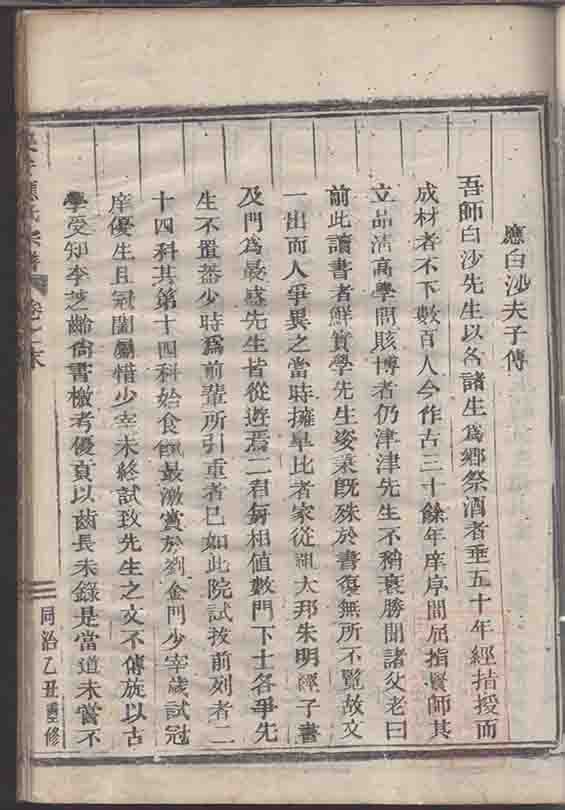 應白沙夫子傳
吾師白沙先生以名諸生爲鄉祭酒者垂五十年經指授而
成材者不下數百人今作古三十餘年庠序間屈指賢師其
立品清高學問賅博者仍津津先生不稍衰勝聞諸父老曰
前此讀書者鮮實學先生姿秉既殊於書復無所不覽故文
一出而人爭異之當時擁臯比者家從祖大邦朱明經子書
及門爲最盛先生皆從遊焉二君每相值數門下士各爭先
生不置蓋少時爲前輩所引重者已如此院試拔前列者二
十四科其第十四科始食餼最激賞於劉金門少宰歲試冠
庠優生且冠闔屬惜少宰未終試致先生之文不傳族以古
學受知李芝齡尙書檄考優貢以齒長未錄是當道未嘗不
應氏宗譜
卷之末
同治乙丑重修